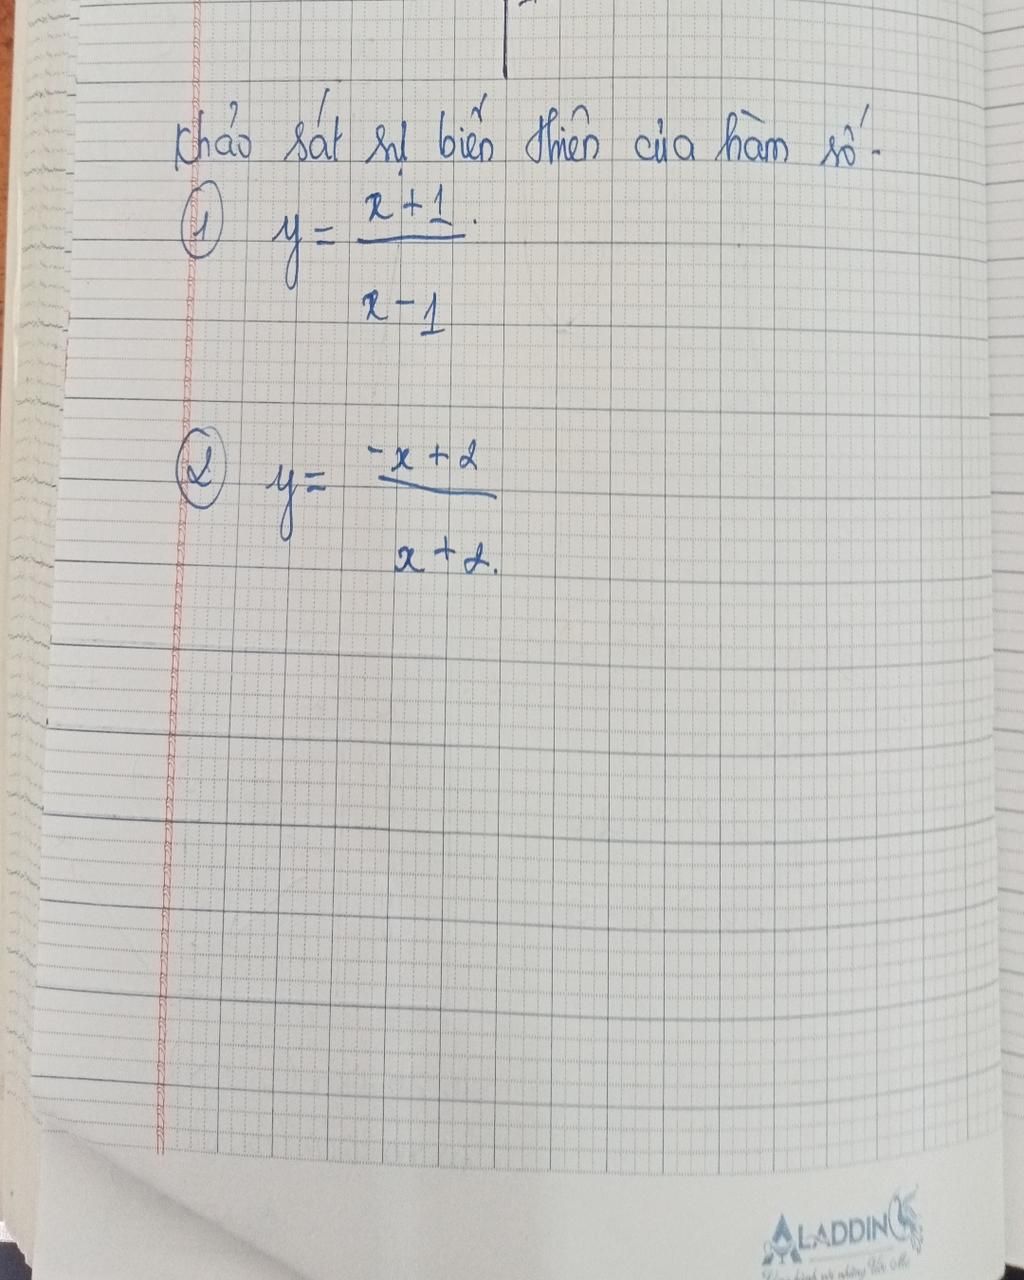 Khảo sát sự biến thiên của hàm số.
① y = x + 1
x - 1
② y = -x + 2
x + 2.
ALADDIN